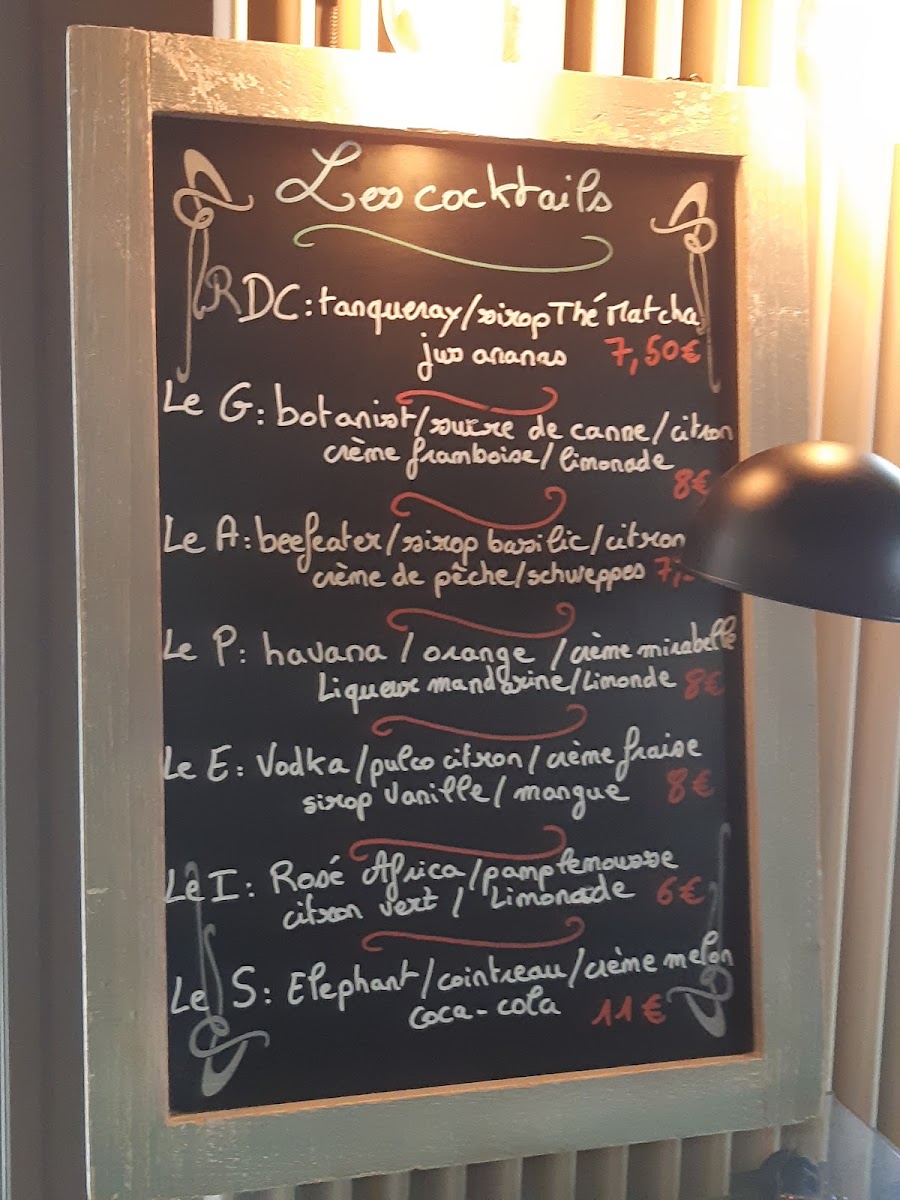 Les cocktails
RDC: tanqueray/sirop Thé Matcha
jus ananas 7,50€
Le G: botanist/sucre de canne/citron
crème framboise/limonade
8€
Le A: beefeater/sirop basilic/citron
crème de pêche/schweppes 7,
Le P: havana / orange /crème mirabelle
Liqueur mandarine/Limonde 8€
Le E: Vodka/pulco citron/crème fraise
sirop Vanille/mangue 8€
Le I: Rosé Africa/pamplemousse
citron vert / Limonade 6€
Le S: Elephant/cointreau/crème melon
coca-cola 11€